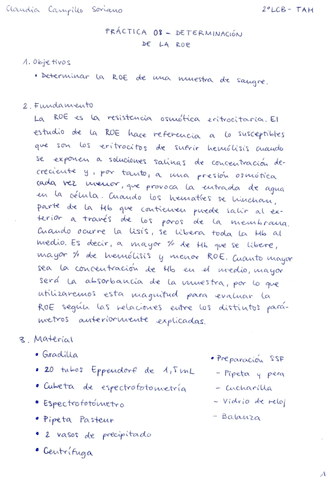 Claudia Campillo Soriano
2ºLCB - TAH
PRÁCTICA 08 - DETERMINACIÓN
DE LA ROE
1. Objetivos
• Determinar la ROE de una muestra de sangre.
2. Fundamento
La ROE es la resistencia osmótica eritrocitaria. El
estudio de la ROE hace referencia a lo susceptibles
que son los eritrocitos de sufrir hemólisis cuando
se exponen a soluciones salinas de concentración de-
creciente y, por tanto, a una presión osmótica
cada vez menor, que provoca la entrada de agua
en la célula. Cuando los hematíes se hinchan,
parte de la Hb que contienen puede salir al ex-
terior a través de los poros de la membrana.
Cuando ocurre la lisis, se libera toda la Hb al
medio. Es decir, a mayor % de Hb que se libere,
mayor % de hemólisis y menor ROE. Cuanto mayor
sea la concentración de Hb en el medio, mayor
será la absorbancia de la muestra, por lo que
utilizaremos esta magnitud para evaluar la
ROE según las relaciones entre los distintos pará-
metros anteriormente explicadas.
3. Material
• Gradilla
• 20 tubos Eppendorf de 1,5mL
• Cubeta de espectrofotometría
• Espectrofotómetro
• Pipeta Pasteur
• 2 vasos de precipitado
• Centrífuga
• Preparación SSF
- Pipeta y pera
- Cucharilla
- Vidrio de reloj
- Balanza
1